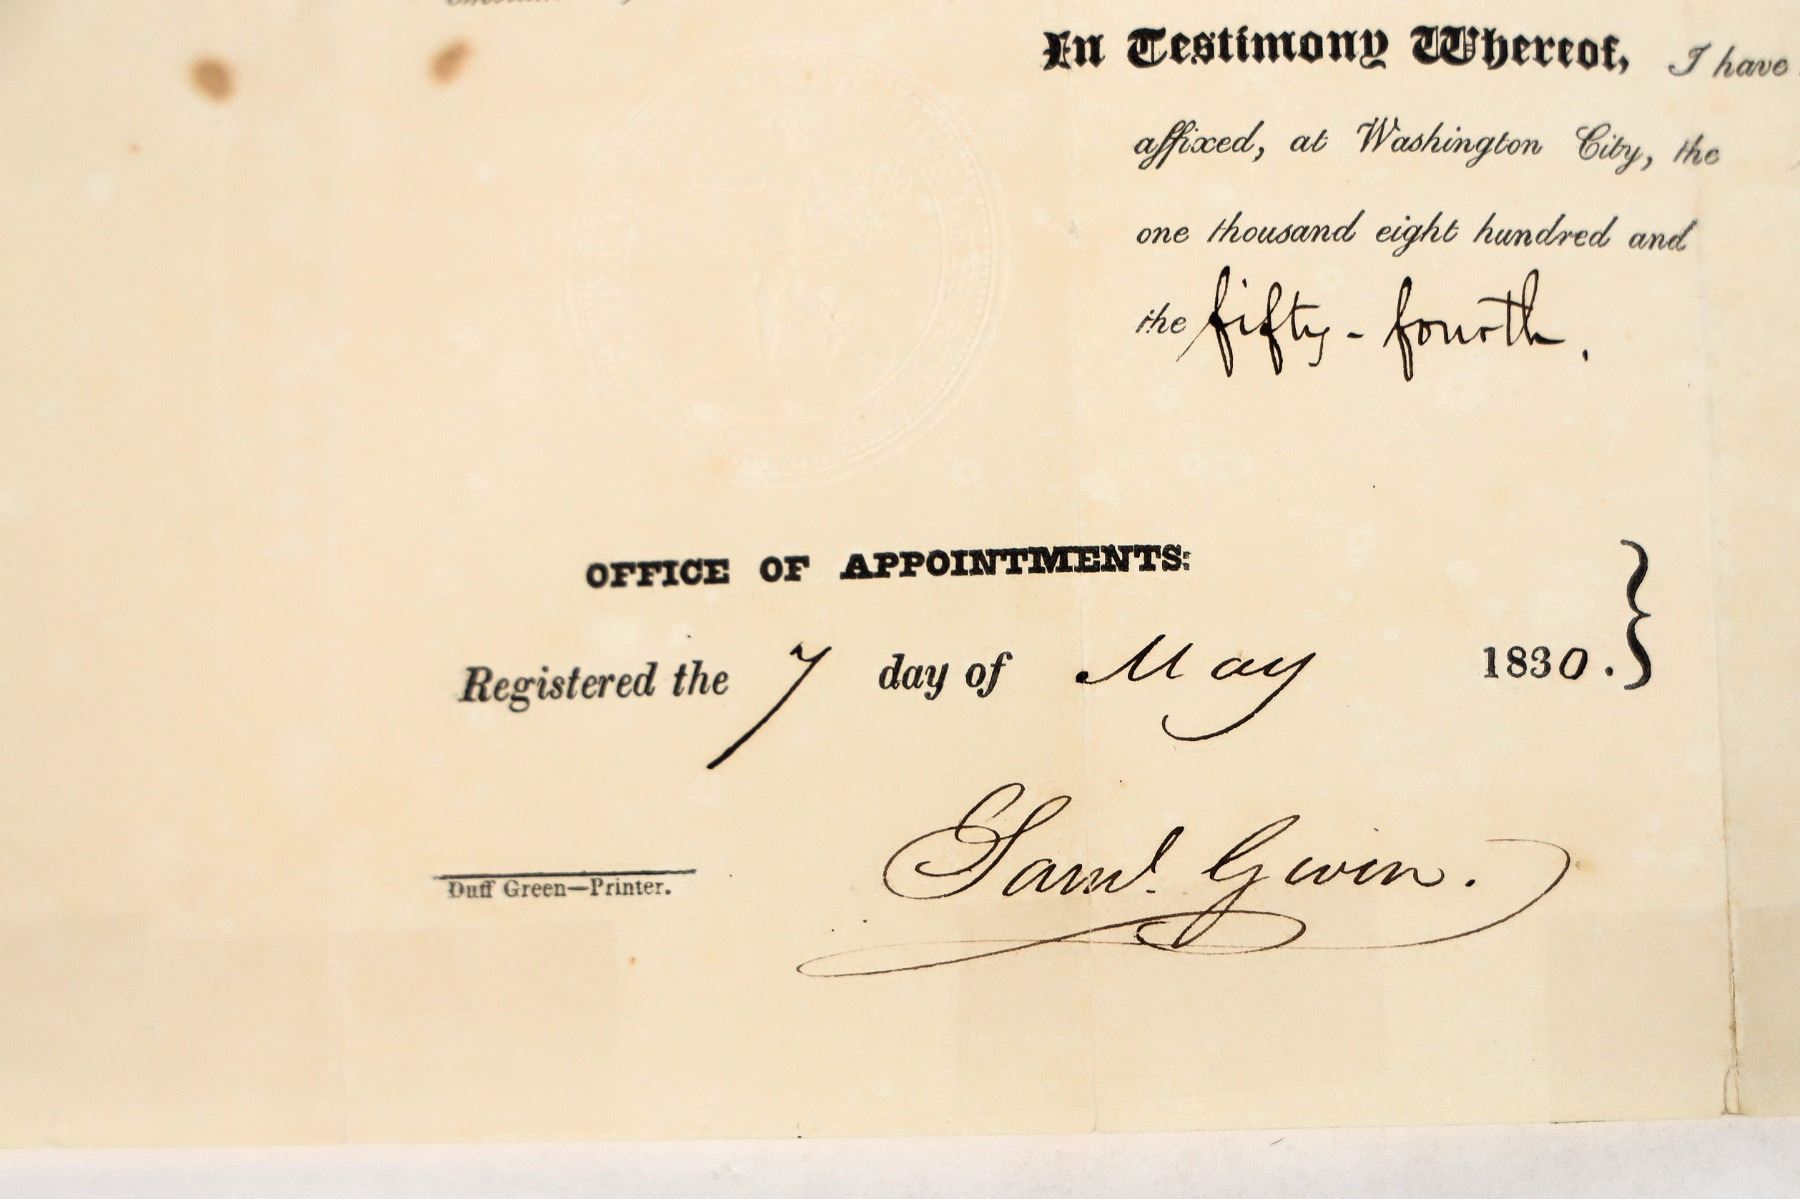 In Testimony Whereof, I have
affixed, at Washington City, the
one thousand eight hundred and
the fifty-fourth.
OFFICE OF APPOINTMENTS:
Registered the 7 day of May 1830.
Saml. Gwin.
Duff Green—Printer.